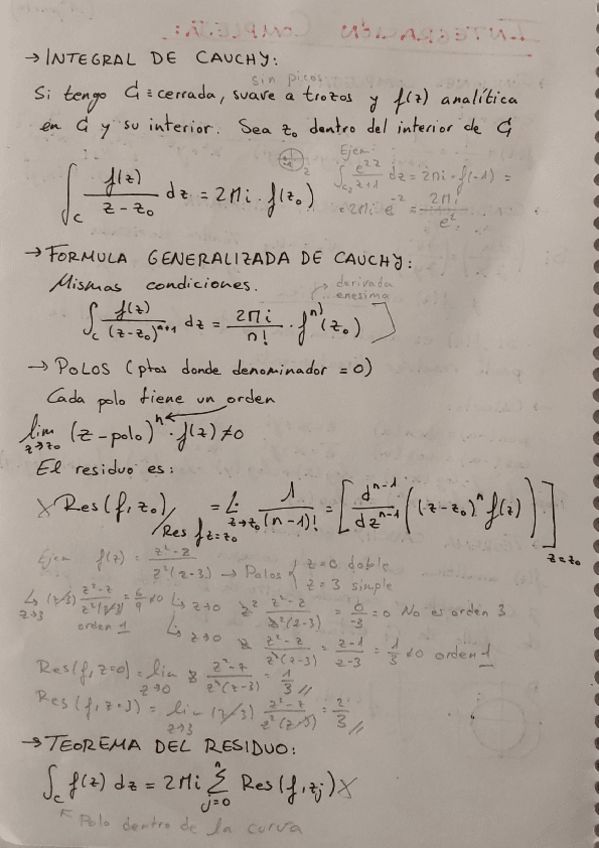 INTEGRACIÓN COMPLEJA:
→ INTEGRAL DE CAUCHY:
sin picos
Si tengo C ≡ cerrada, suave a trozos y f(z) analítica
en C y su interior. Sea z₀ dentro del interior de C
Ejem:
∫_C f(z)/(z-z₀) dz = 2πi · f(z₀)
∫_C₂ e^(2z)/(z+1) dz = 2πi · f(-1) =
= 2πi e^(-2) = 2πi/e²
→ FORMULA GENERALIZADA DE CAUCHY:
Mismas condiciones.
→ derivada
enesima
∫_C f(z)/(z-z₀)^(n+1) dz = 2πi/n! · f^(n)(z₀)
→ POLOS (ptos donde denominador = 0)
Cada polo tiene un orden
lim z→z₀ (z-polo)^n · f(z) ≠ 0
El residuo es:
X Res(f, z₀) / Res f z=z₀ = L z→z₀ 1/(n-1)! = [d^(n-1)/dz^(n-1) ((z-z₀)^n f(z))] z=z₀
Ejem f(z) = (z²-z)/(z²(z-3)) → Polos { z=0 doble
z=3 simple
L z→3 (z-3) (z²-z)/(z²(z-3)) = 6/9 ≠ 0
orden 1
L z→0 z² (z²-z)/(z²(z-3)) = 0/-3 = 0 No es orden 3
L z→0 z (z²-z)/(z²(z-3)) = (z-1)/(z-3) = 1/3 ≠ 0 orden 1
Res(f, z=0) = lim z→0 z (z²-z)/(z²(z-3)) = 1/3 //
Res(f, z=3) = lim z→3 (z-3) (z²-z)/(z²(z-3)) = 2/3 //
→ TEOREMA DEL RESIDUO:
∫_C f(z) dz = 2πi Σ_(j=0)^n Res(f, z_j) X
Polo dentro de la curva